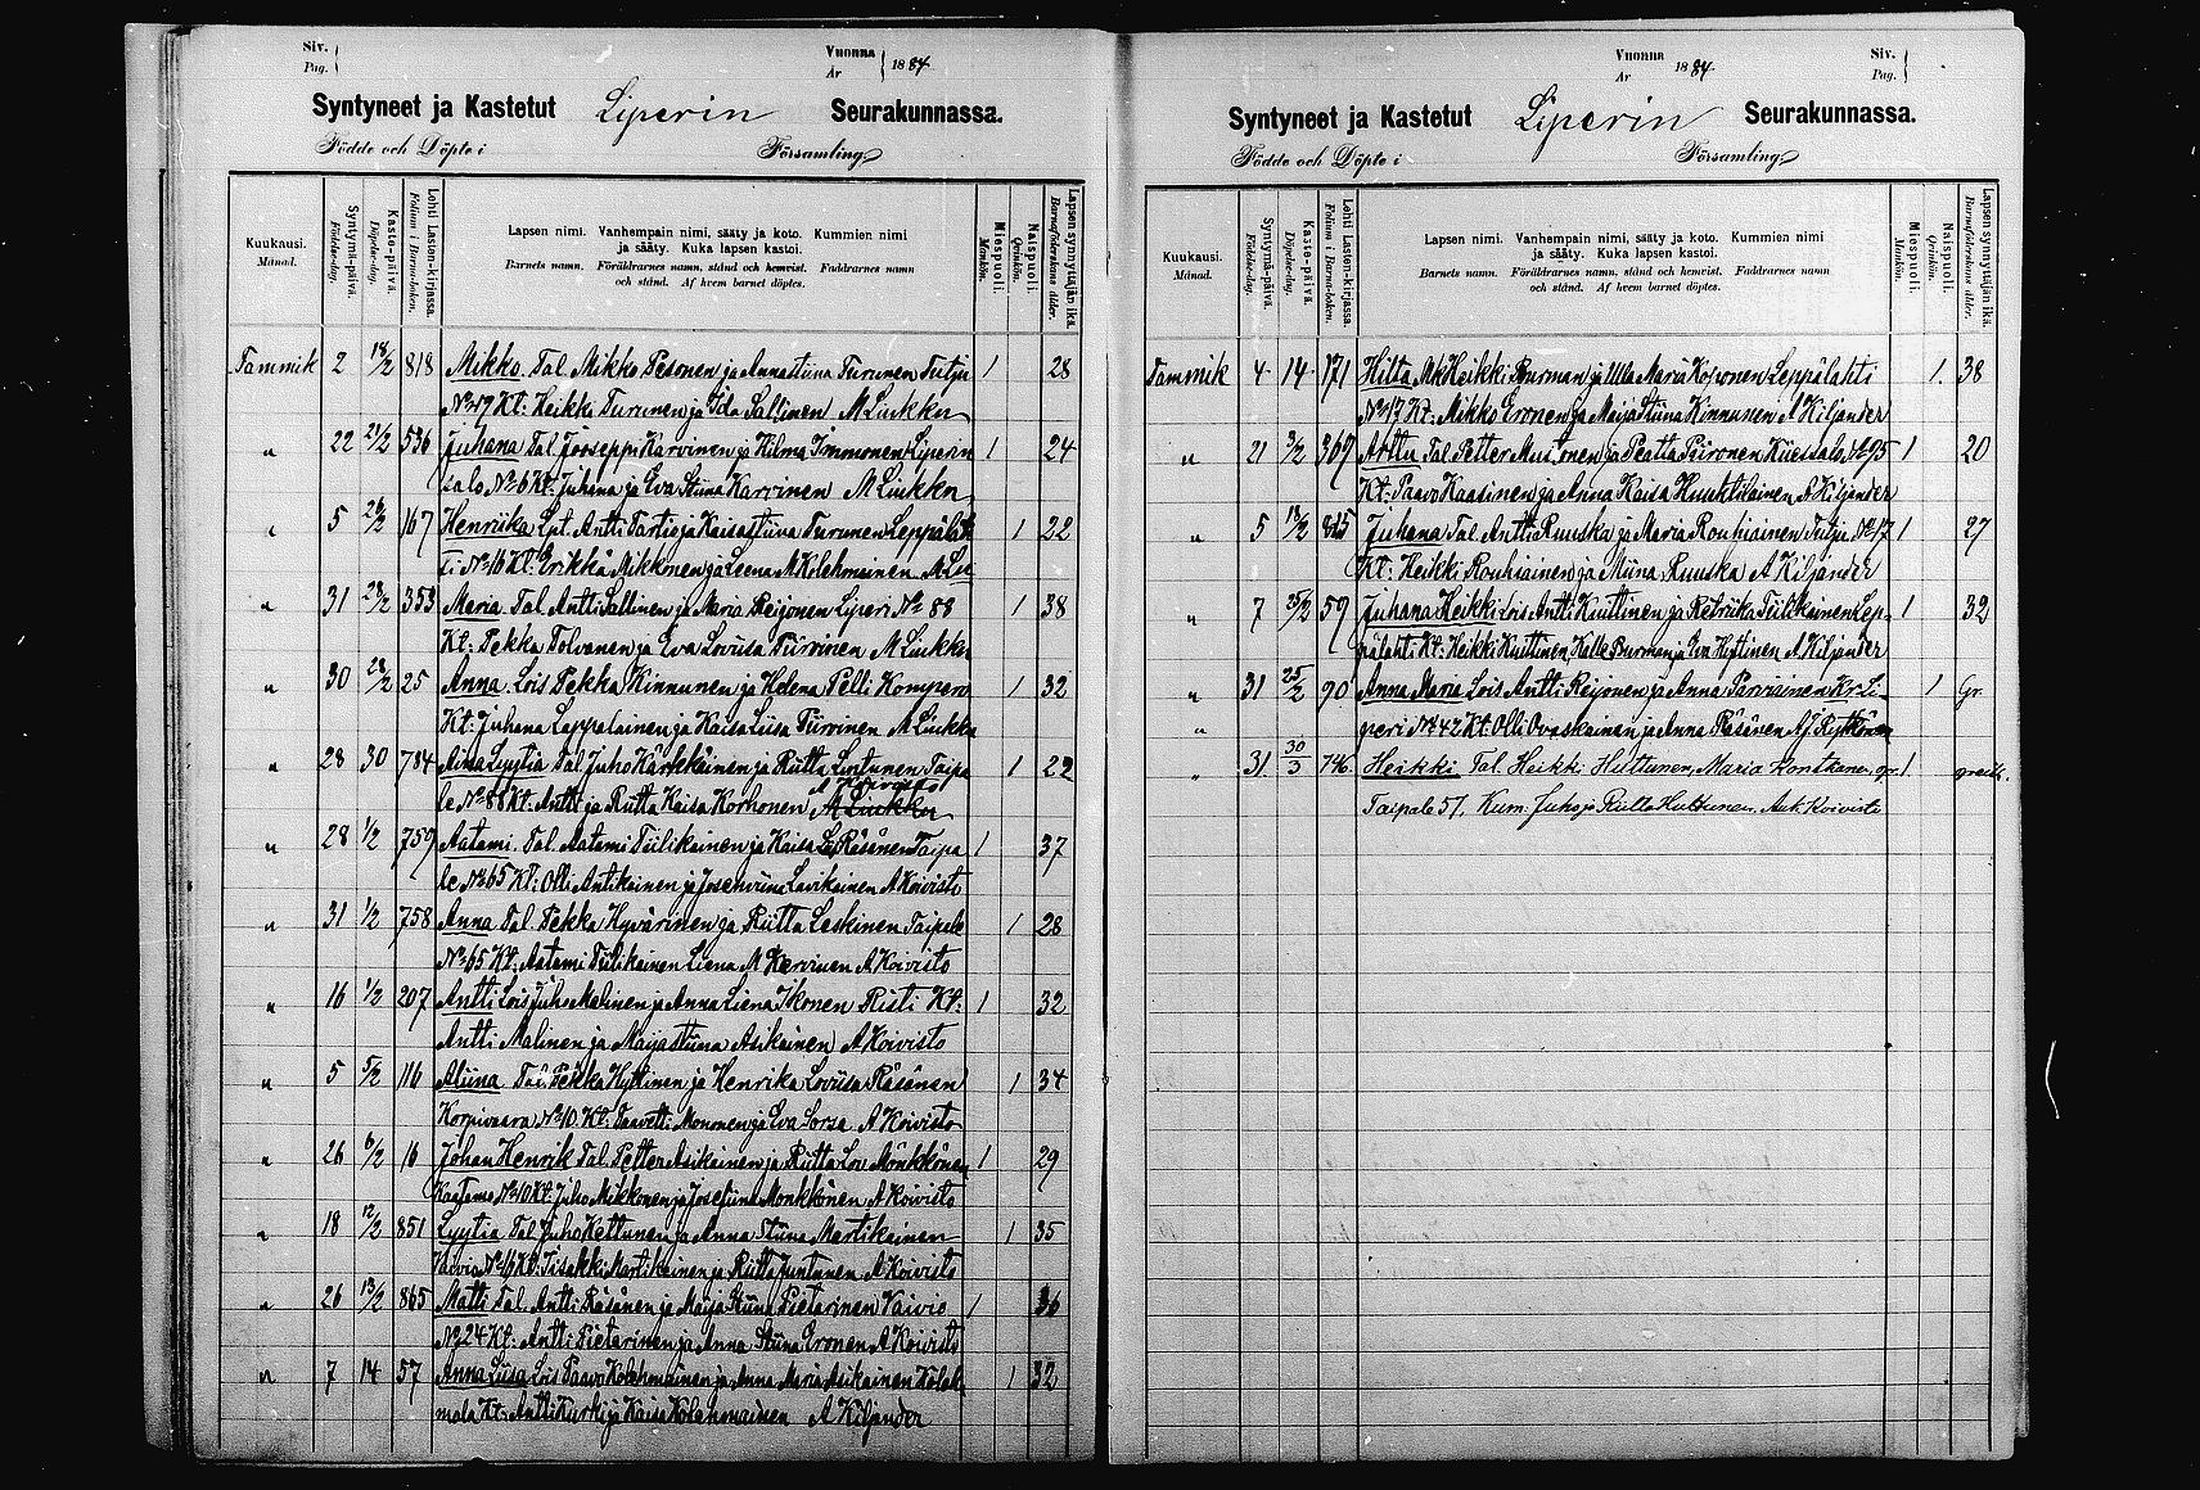 Siv.
Pag.
Vuonna
År
1884.
Syntyneet ja Kastetut Liperin Seurakunnassa.
Födde och Döpte i Församling
Kuukausi.
Månad.
Syntymä-päivä.
Födelse-dag.
Kaste-päivä.
Döpelse-dag.
Lehti Lasten-kirjassa.
Folium i Barna-boken.
Lapsen nimi. Vanhempain nimi, sääty ja koto. Kummien nimi
ja sääty. Kuka lapsen kastoi.
Barnets namn. Föräldrarnes namn, stånd och hemvist. Faddrarnes namn
och stånd. Af hvem barnet döptes.
Miespuoli.
Mankön.
Naispuoli.
Qvinkön.
Lapsen synnyttäjän ikä.
Barnaföderskans ålder.
Tammik 2 18/2 818 Mikko Tal. Mikko Pesonen ja Annastiina Turunen Tutju 1 28
No 19 Kt: Heikki Turunen ja Ida Sallinen M Liukku
" 22 21/2 536 Juhana Tal. Jooseppi Karvinen ja Hilma Immonen Liperin 1 24
salo No 6 Kt: Juhana ja Eva Stiina Karvinen M Liukku
" 5 28/2 167 Henriika Lpt. Antti Partio ja Kaisastiina Turunen Leppälah 1 22
ti No 16 Kt: Erikka Mikkonen ja Leena M Kolehmainen M Liu
" 31 28/2 353 Maria Tal Antti Sallinen ja Maria Reijonen Liperi No 88 1 38
Kt: Pekka Tolvanen ja Eva Loviisa Tiirvinen M Liukku
" 30 28/2 25 Anna Lois Pekka Kinnunen ja Helena Pelli Kompero 1 32
Kt: Juhana Leppälainen ja Kaisa Liisa Tiirvinen M Liukku
" 28 30 784 Aina Lyytia Tal Juho Kärkkäinen ja Riitta Lintunen Taipa 1 22
A Koivisto
le No 88 Kt: Antti ja Riitta Kaisa Korhonen M Liukku
" 28 1/2 759 Aatami. Tal. Aatami Tiilikainen ja Kaisa L Räsänen Taipa 1 37
le No 65 Kt: Olli Antikainen ja Josehviina Lavikainen A Koivisto
" 31 1/2 758 Anna Tal. Pekka Hyvärinen ja Riitta Leskinen Taipale 1 28
No 65 Kt: Aatami Tiilikainen Liena M Kervinen A Koivisto
" 16 1/2 207 Antti Lois Juho Malinen ja Anna Liena Ikonen Risti Kt: 1 32
Antti Malinen ja Maijastiina Asikainen A Koivisto
" 5 5/2 116 Aliina Tal Pekka Hyttinen ja Henrika Loviisa Räsänen 1 34
Korpivaara No 10. Kt: Taavetti Mononen ja Eva Sorsa A Koivisto
" 26 6/2 16 Johan Henrik Tal Petter Asikainen ja Riitta Lov Mönkkönen 1 29
Kaatamo No 10 Kt: Juho Mikkonen ja Josefiina Monkkönen A Koivisto
" 18 12/2 851 Lyytia Tal Juho Kettunen ja Anna Stiina Martikainen 1 35
Vaivio No 16 Kt: Iisakki Martikainen ja Riitta Juntunen A Koivisto
" 26 13/2 865 Matti Tal. Antti Räsänen ja Maija Stiina Pietarinen Vaivio 1 36
No 24 Kt: Antti Pietarinen ja Anna Stiina Eronen A Koivisto
" 7 14 57 Anna Liisa Lois Paavo Kolehmainen ja Anna Maria Asikainen Koleh 1 32
mala Kt: Antti Kurki ja Kaisa Kolehmainen A Kiljander
Vuonna
År
1884.
Siv.
Pag.
Syntyneet ja Kastetut Liperin Seurakunnassa.
Födde och Döpte i Församling
Kuukausi.
Månad.
Syntymä-päivä.
Födelse-dag.
Kaste-päivä.
Döpelse-dag.
Lehti Lasten-kirjassa.
Folium i Barna-boken.
Lapsen nimi. Vanhempain nimi, sääty ja koto. Kummien nimi
ja sääty. Kuka lapsen kastoi.
Barnets namn. Föräldrarnes namn, stånd och hemvist. Faddrarnes namn
och stånd. Af hvem barnet döptes.
Miespuoli.
Mankön.
Naispuoli.
Qvinkön.
Lapsen synnyttäjän ikä.
Barnaföderskans ålder.
Tammik 4 14 171 Hilta Mk Heikki Purman ja Ulla Maria Koponen Leppälahti 1. 38
No 17 Kt: Mikko Eronen ja Maija Stiina Kinnunen A Kiljander
" 21 3/2 369 Arttu Tal Petter Mustonen ja Peatta Piironen Kiiessalo No 95 1 20
Kt: Paavo Kaasinen ja Anna Kaisa Huuhtilainen A Kiljander
" 5 18/2 815 Juhana Tal. Antti Ruuska ja Maria Rouhiainen Tutju No 17 1 27
Kt: Heikki Rouhiainen ja Miina Ruuska A Kiljander
" 7 25/2 59 Juhana Heikki Lois Antti Kuittinen ja Retriika Tiilikainen Lep- 1 32
pälahti Kt: Heikki Kuittinen, Kalle Purman ja Eva Hyttinen A Kiljander
" 31 25/2 90 Anna Maria Lois Antti Reijonen ja Anna Parviainen Kr. Li- 1 Gr.
" peri No 42 Kt: Olli Ovaskainen ja Anna Räsänen A J. Rytkönen
" 31. 30/3 746 Heikki Tal. Heikki Huttunen, Maria Kontkanen, gr. 1. greitt.
Taipale 57. Kum: Juho ja Riitta Huttunen. Ant. Koivisto